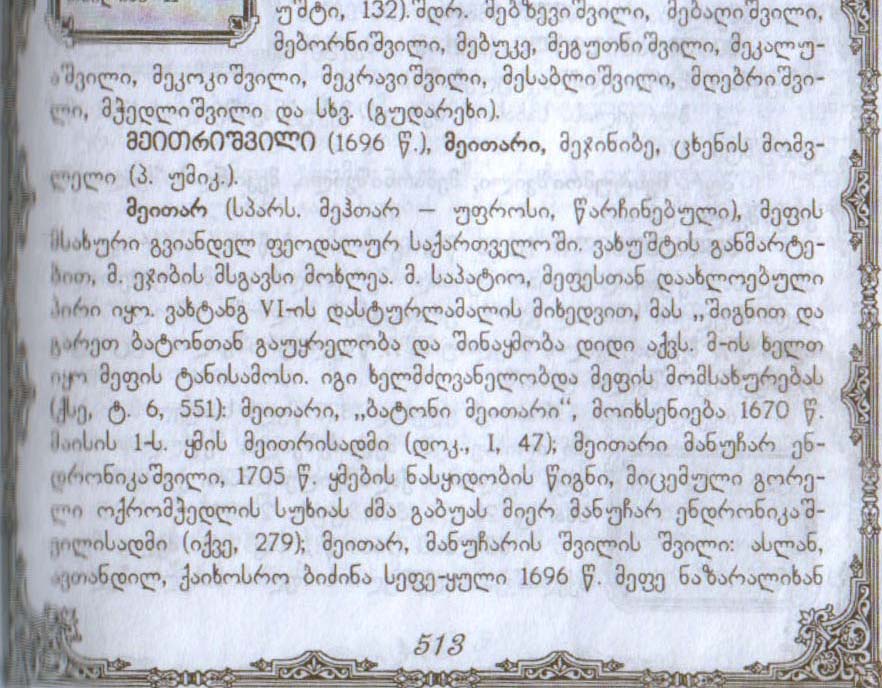 უშტი, 132). შდრ. მებზევიშვილი, მებაღიშვილი,
მებორნიშვილი, მებუკე, მეგუთნიშვილი, მეკალუ-
აშვილი, მეკოკიშვილი, მეკრავიშვილი, მესაბლიშვილი, მღებრიშვი-
ლი, მჭედლიშვილი და სხვ. (გუდარეხი).
მეითრიშვილი (1696 წ.), მეითარი, მეჯინიბე, ცხენის მომვ-
ლელი (პ. უმიკ.).
მეითარ (სპარს. მეჰთარ — უფროსი, წარჩინებული), მეფის
მსახური გვიანდელ ფეოდალურ საქართველოში. ვახუშტის განმარტე-
ბით, მ. ეჯიბის მსგავსი მოხლეა. მ. საპატიო, მეფესთან დაახლოებული
პირი იყო. ვახტანგ VI-ის დასტურლამალის მიხედვით, მას „შიგნით და
გარეთ ბატონთან გაუყრელობა და შინაყმობა დიდი აქვს. მ-ის ხელთ
იყო მეფის ტანისამოსი. იგი ხელმძღვანელობდა მეფის მომსახურებას
(ქსე, ტ. 6, 551): მეითარი, „ბატონი მეითარი“, მოიხსენიება 1670 წ.
მაისის 1-ს. ყმის მეითრისადმი (დოკ., I, 47); მეითარი მანუჩარ ენ-
დრონიკაშვილი, 1705 წ. ყმების ნასყიდობის წიგნი, მიცემული გორე-
ლი ოქრომჭედლის სუხიას ძმა გაბუას მიერ მანუჩარ ენდრონიკაშ-
ვილისადმი (იქვე, 279); მეითარ, მანუჩარის შვილის შვილი: ასლან,
ავთანდილ, ქაიხოსრო ბიძინა სეფე-ყული 1696 წ. მეფე ნაზარალიხან
513